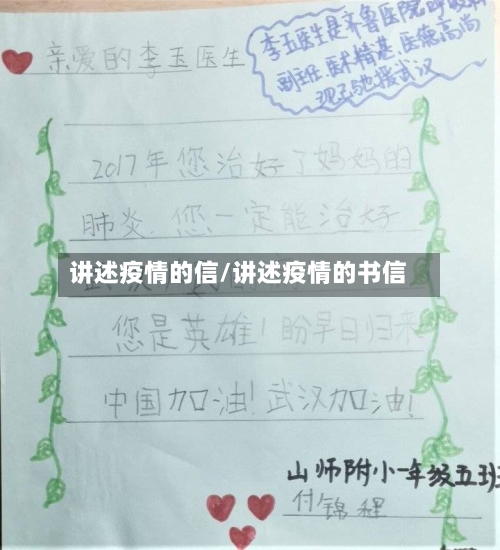 亲爱的李玉医生
李玉医生是齐鲁医院呼吸科
副主任 医术精湛、医德高尚
现已驰援武汉
2017年您治好了妈妈的
肺炎,您一定能治好
讲述疫情的信/讲述疫情的书信
您是英雄!盼早日归来
中国加油!武汉加油!
山师附小一年级五班
付锦程